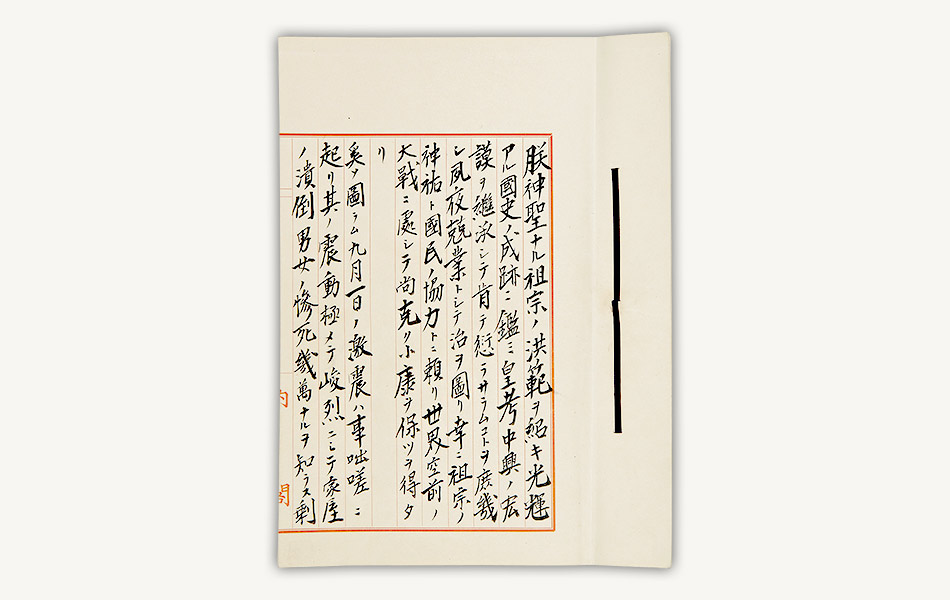 朕神聖ナル祖宗ノ洪範ヲ紹キ光輝
アル國史ノ成跡ニ鑑ミ皇考中興ノ宏
謨ヲ継承シテ肯テ愆ラサラムコトヲ庶幾
シ夙夜兢業トシテ治ヲ圖リ幸ニ祖宗ノ
神祐ト國民ノ協力トニ頼リ世界空前ノ
大戰ニ處シテ尚克ク小康ヲ保ツヲ得タ
リ
奚ソ圖ラム九月一日ノ激震ハ事咄嗟ニ
起リ其ノ震動極メテ峻烈ニシテ家屋
ノ潰倒男女ノ惨死幾萬ナルヲ知ラス剰
内閣